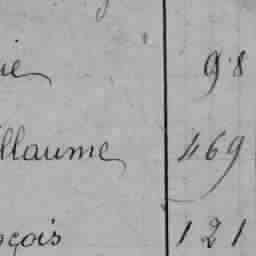 ie 98
llaume 469
çois 121